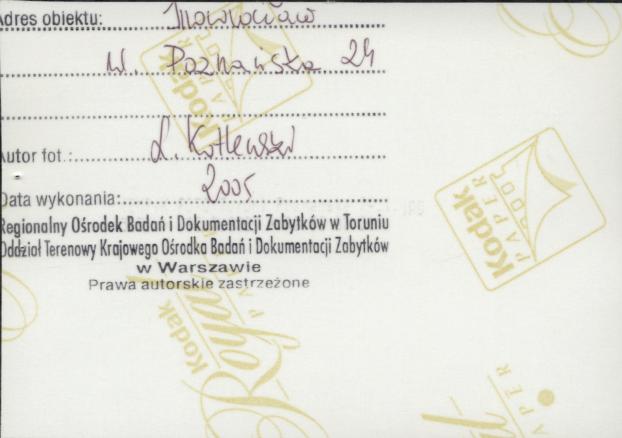 Adres obiektu: Inowrocław
ul. Poznańska 24
Autor fot.: L. Kotlewski
Data wykonania: 2005
Regionalny Ośrodek Badań i Dokumentacji Zabytków w Toruniu
Oddział Terenowy Krajowego Ośrodka Badań i Dokumentacji Zabytków
w Warszawie
Prawa autorskie zastrzeżone
Kodak
PAPER
Kodak
PAPER
Kodak
Royal
PAPER
PAPER